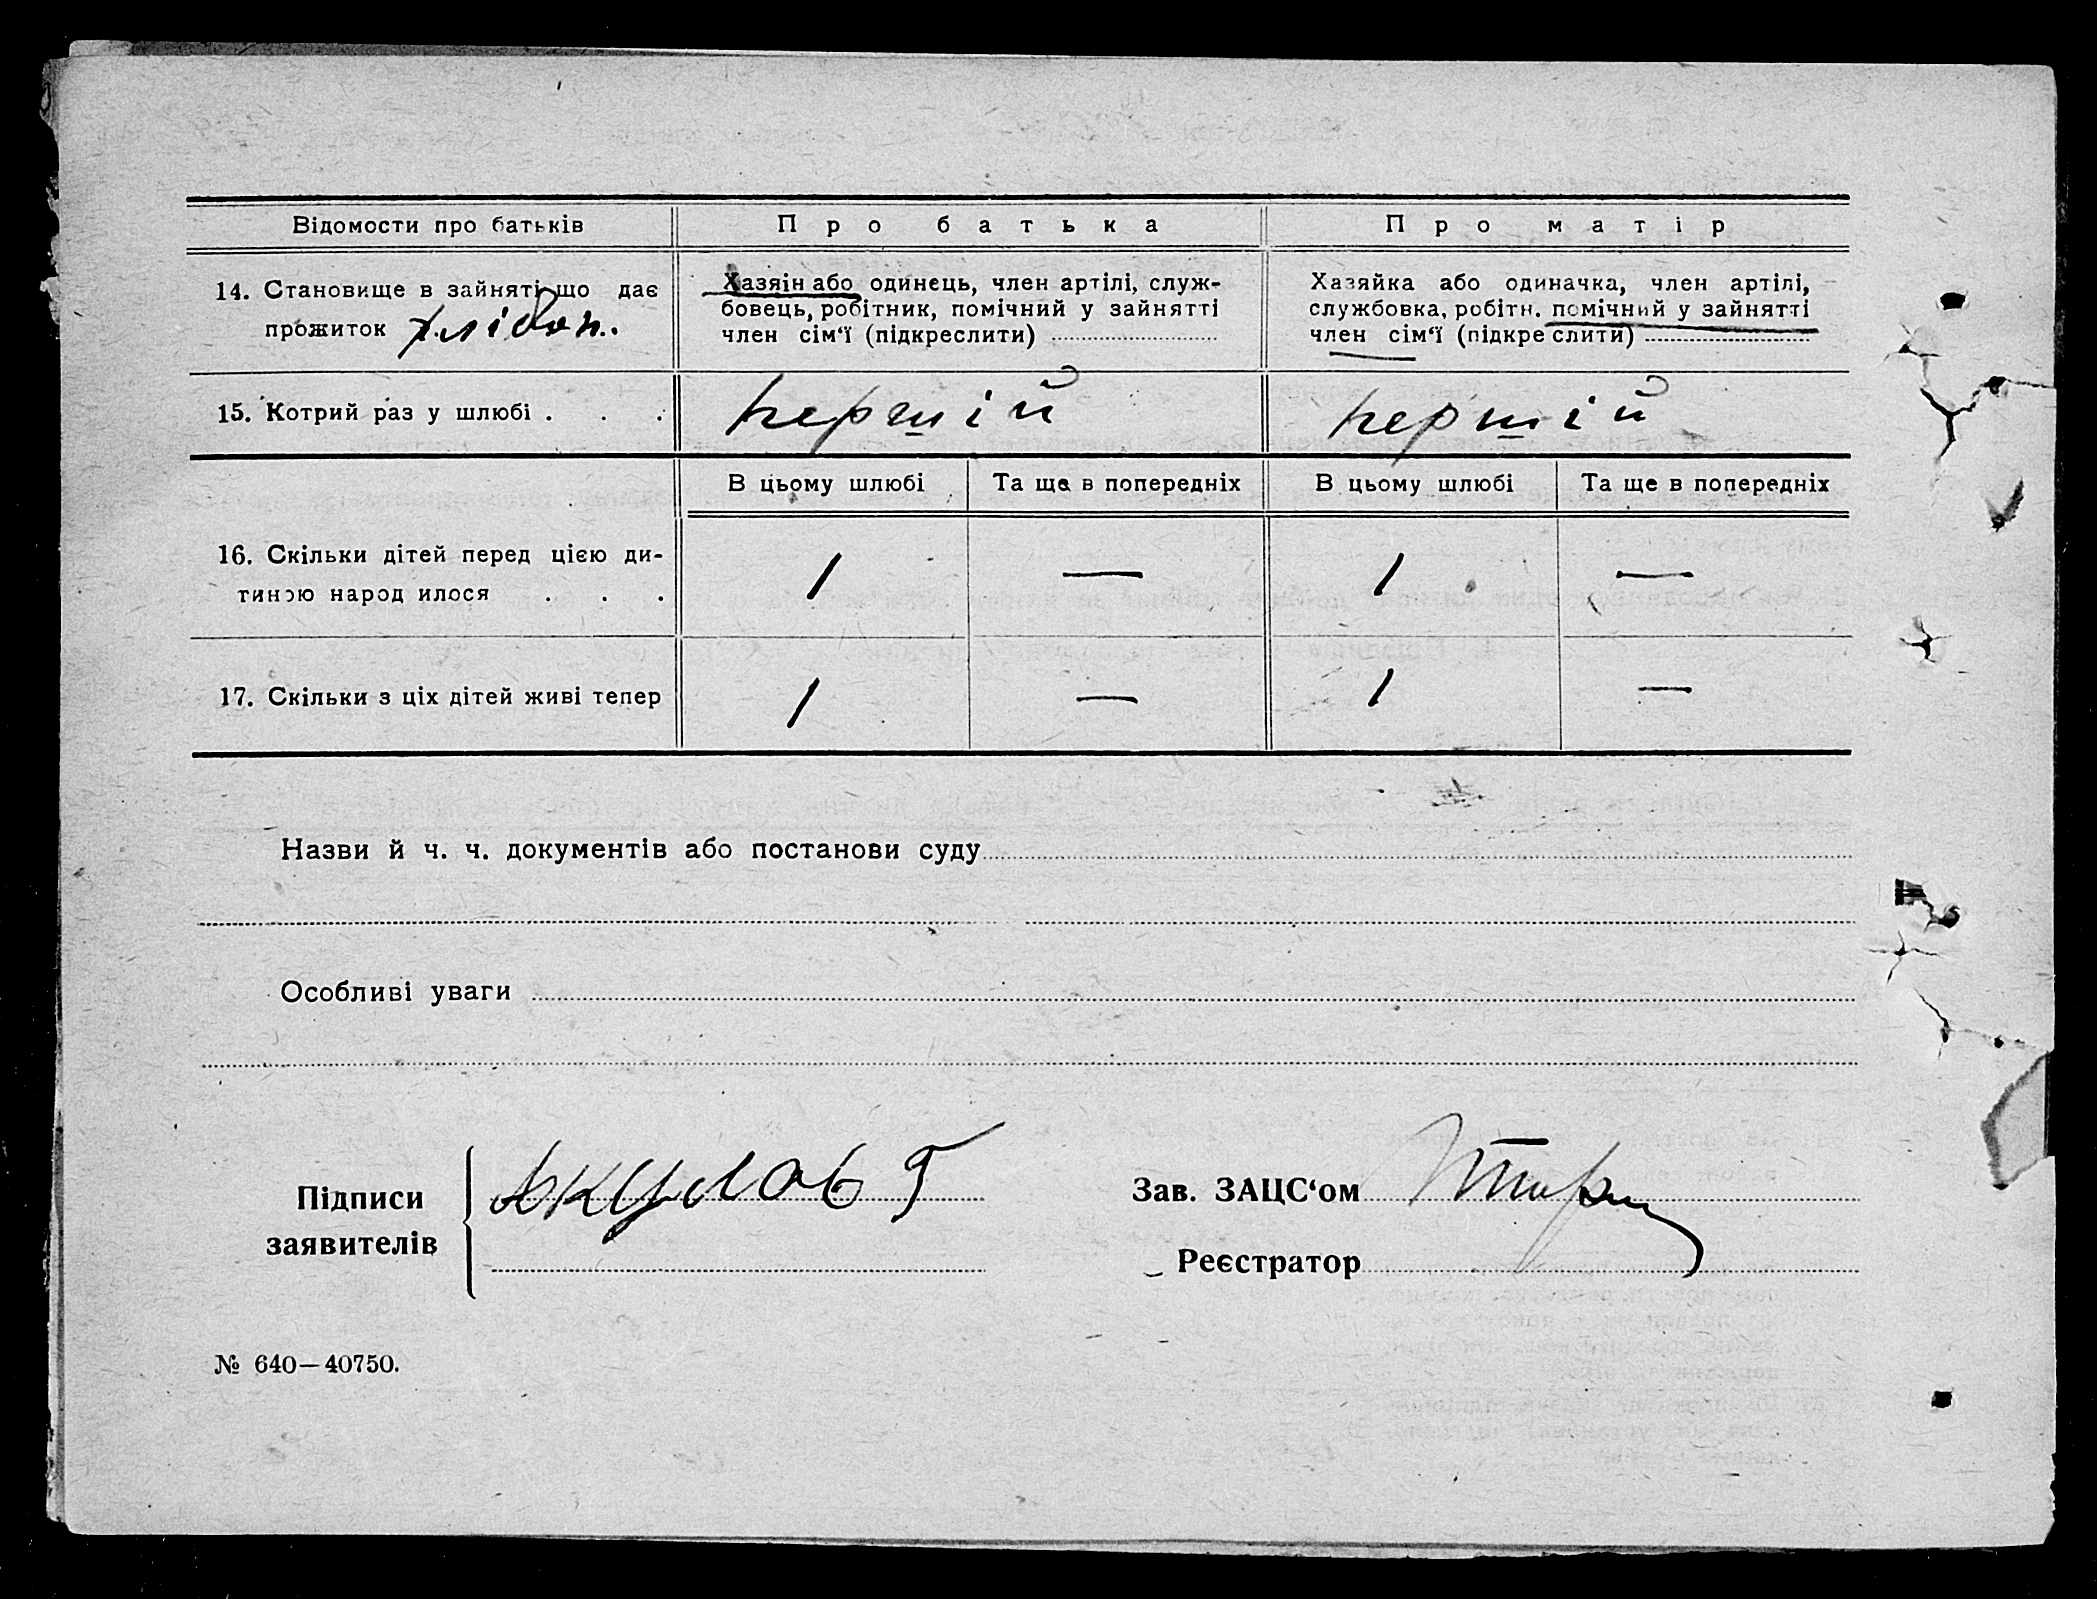 Відомости про батьків
Про батька
Про матір
14. Становище в зайняті що дає
прожиток хлібоп.
Хазяїн або одинець, член артілі, служ-
бовець, робітник, помічний у зайнятті
член сім‘ї (підкреслити)
Хазяйка або одиначка, член артілі,
службовка, робітн. помічний у зайнятті
член сім‘ї (підкреслити)
15. Котрий раз у шлюбі . . .
першій
першій
В цьому шлюбі
Та ще в попередніх
В цьому шлюбі
Та ще в попередніх
16. Скільки дітей перед цією ди-
тиною народилося . . .
1
—
1
—
17. Скільки з ціх дітей живі тепер
1
—
1
—
Назви й ч. ч. документів або постанови суду
Особливі уваги
Підписи
заявителів
Акулов Г
Зав. ЗАЦС‘ом
Реєстратор
№ 640—40750.